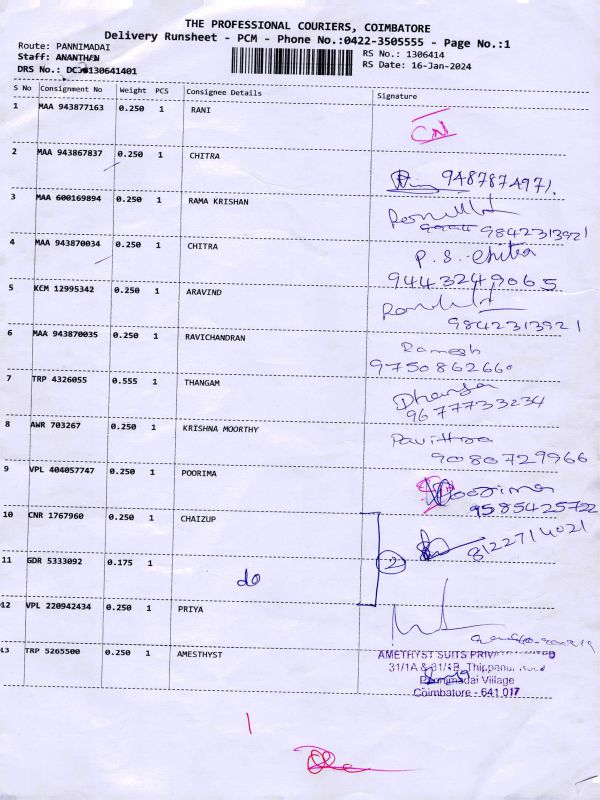 THE PROFESSIONAL COURIERS, COIMBATORE
Delivery Runsheet - PCM - Phone No.:0422-3505555 - Page No.:1
Route: PANNIMADAI
RS No.: 1306414
Staff: ANANTHAN
RS Date: 16-Jan-2024
DRS No.: 130641401
S No Consignment No Weight PCS Consignee Details Signature
1 MAA 943877163 0.250 1 RANI
2 MAA 943867837 0.250 1 CHITRA
9487874971.
3 MAA 600169894 0.250 1 RAMA KRISHAN
9842313921
4 MAA 943870034 0.250 1 CHITRA P. S. Chitra
9443249065
5 KCM 12995342 0.250 1 ARAVIND
9842313921
6 MAA 943870035 0.250 1 RAVICHANDRAN Ramesh
9750862660
7 TRP 4326055 0.555 1 THANGAM Dhanya
9677733234
8 AWR 703267 0.250 1 KRISHNA MOORTHY Pavithra
9080729966
9 VPL 404057747 0.250 1 POORIMA Poorima
9585425722
10 CNR 1767960 0.250 1 CHAIZUP 8122714021
2
11 GDR 5333092 0.175 1 do
12 VPL 220942434 0.250 1 PRIYA
13 TRP 5265500 0.250 1 AMESTHYST AMETHYST SUITS
31/1A & 31/1B,
Village
Coimbatore - 641 017